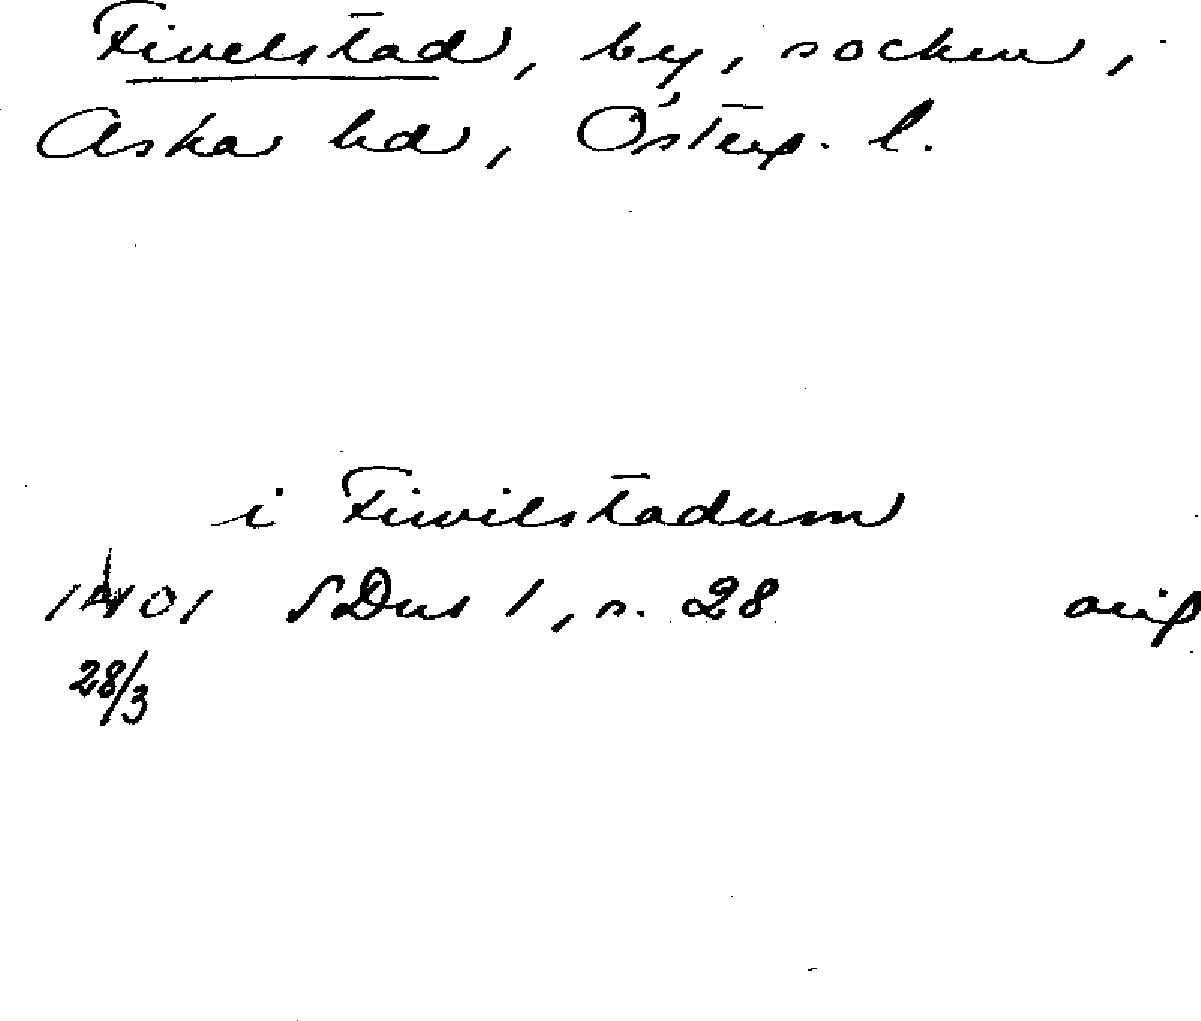 Fivelstad, by, socken,
Aska hd, Österg. l.
i Fiwilstadum
1401 SDns 1, s. 28 orig
28/3